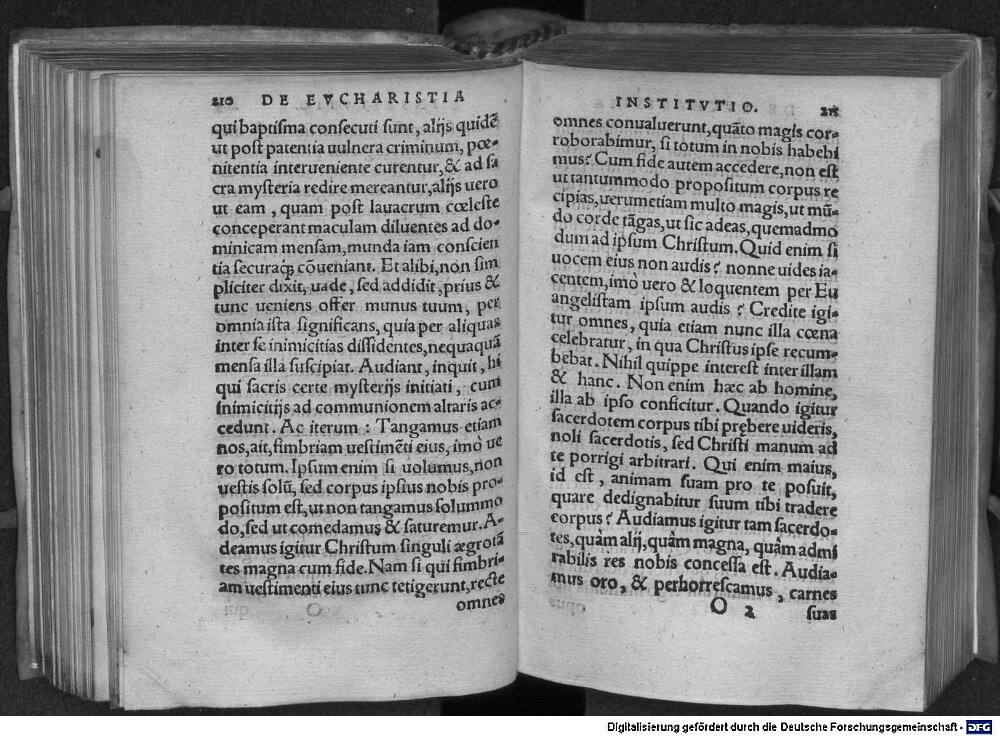 210 DE EVCHARISTIA
qui baptisma consecuti sunt, alijs quidē
ut post patentia uulnera criminum, pœ-
nitentia interueniente curentur, & ad sa
cra mysteria redire mereantur, alijs uero
ut eam, quam post lauacrum cœleste
conceperant maculam diluentes ad do-
minicam mensam, munda iam conscien
tia securaq; cōueniant. Et alibi, non sim
pliciter dixit, uade, sed addidit, prius &
tunc ueniens offer munus tuum, per
omnia ista significans, quia per aliquas
inter se inimicitias dissidentes, nequaquā
mensa illa suscipiat. Audiant, inquit, hi
qui sacris certe mysterijs initiati, cum
inimicitijs ad communionem altaris ac-
cedunt. Ac iterum: Tangamus etiam
nos, ait, fimbriam uestimēti eius, imò ue
ro totum. Ipsum enim si uolumus, non
uestis solū, sed corpus ipsius nobis pro-
positum est, ut non tangamus solummo
do, sed ut comedamus & saturemur. A-
deamus igitur Christum singuli ægrotā
tes magna cum fide. Nam si qui fimbri-
am uestimenti eius tunc tetigerunt, recte
O omnes
INSTITVTIO. 211
omnes conualuerunt, quāto magis cor-
roborabimur, si totum in nobis habebi
mus? Cum fide autem accedere, non est
ut tantummodo propositum corpus re
cipias, uerumetiam multo magis, ut mū-
do corde tāgas, ut sic adeas, quemadmo
dum ad ipsum Christum. Quid enim si
uocem eius non audis? nonne uides ia-
centem, imò uero & loquentem per Eu
angelistam ipsum audis? Credite igi-
tur omnes, quia etiam nunc illa cœna
celebratur, in qua Christus ipse recum-
bebat. Nihil quippe interest inter illam
& hanc. Non enim hæc ab homine,
illa ab ipso conficitur. Quando igitur
sacerdotem corpus tibi prębere uideris,
noli sacerdotis, sed Christi manum ad
te porrigi arbitrari. Qui enim maius,
id est, animam suam pro te posuit,
quare dedignabitur suum tibi tradere
corpus? Audiamus igitur tam sacerdo-
tes, quàm alij, quàm magna, quàm admi
rabilis res nobis concessa est. Audia-
mus oro, & perhorrescamus, carnes
O 2 suas
Digitalisierung gefördert durch die Deutsche Forschungsgemeinschaft - DFG